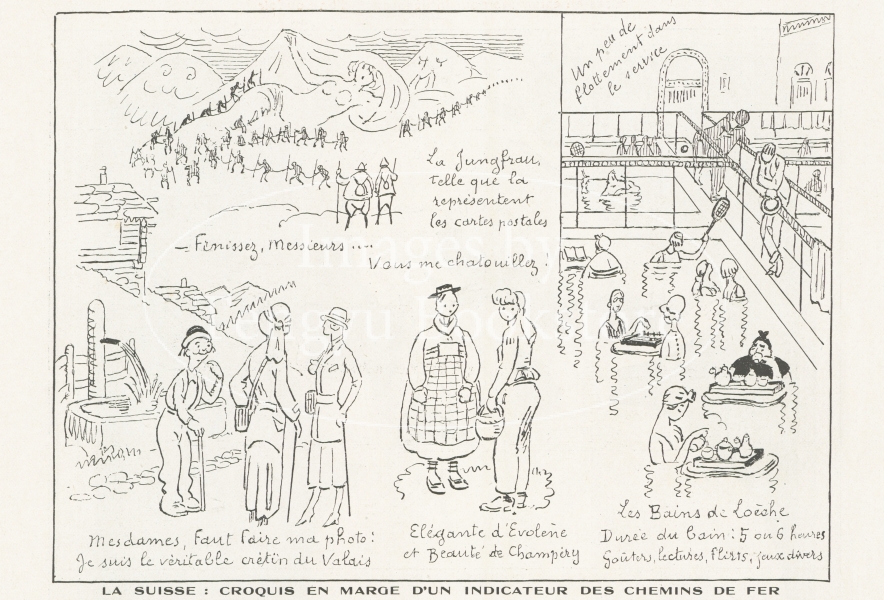 Un peu de
flottement dans
le service
La Jungfrau,
telle que la
représentent
les cartes postales
— Finissez, Messieurs ....
Vous me chatouillez !
Mesdames, faut faire ma photo :
Je suis le véritable crétin du Valais
Elégante d'Evolène
et Beauté de Champéry
Les Bains de Loèche
Durée du bain : 5 ou 6 heures
Goûters, lectures, flirts, jeux divers
LA SUISSE : CROQUIS EN MARGE D'UN INDICATEUR DES CHEMINS DE FER